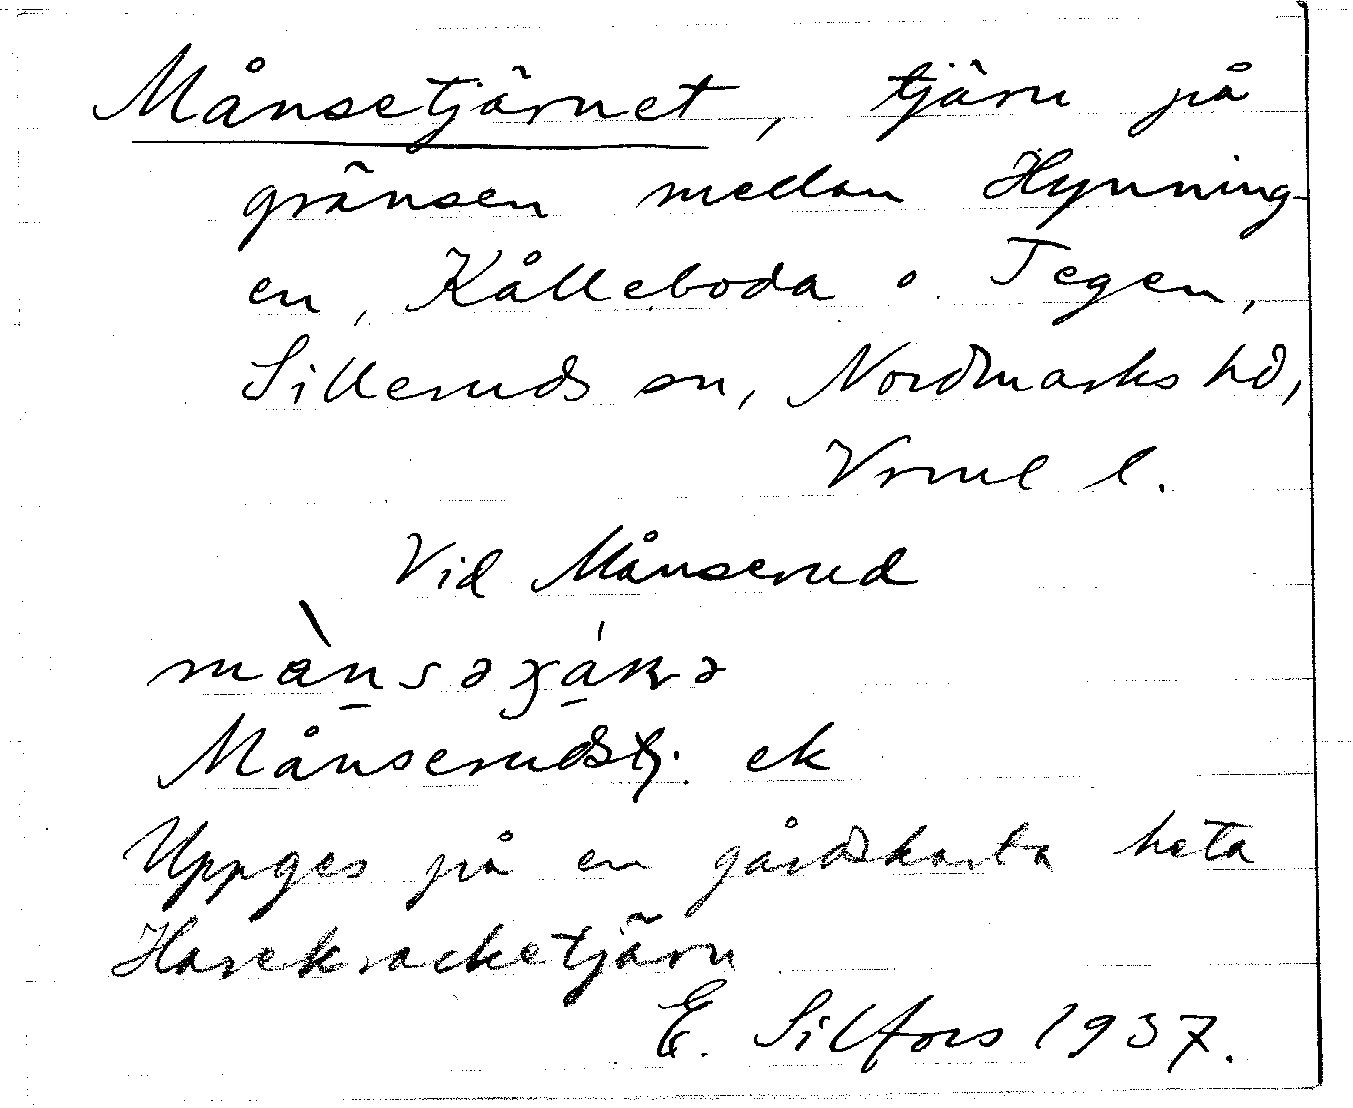 Månsetjärnet, tjärn på
gränsen medan Hynning-
en, Kålleboda o. Tegen,
Silleruds sn, Nordmarks hd,
Vrml l.
Vid Månserud
Månserudstj. ek
Uppges på en gårdskarta heta
Harekracketjärn
E. Silfors 1937.